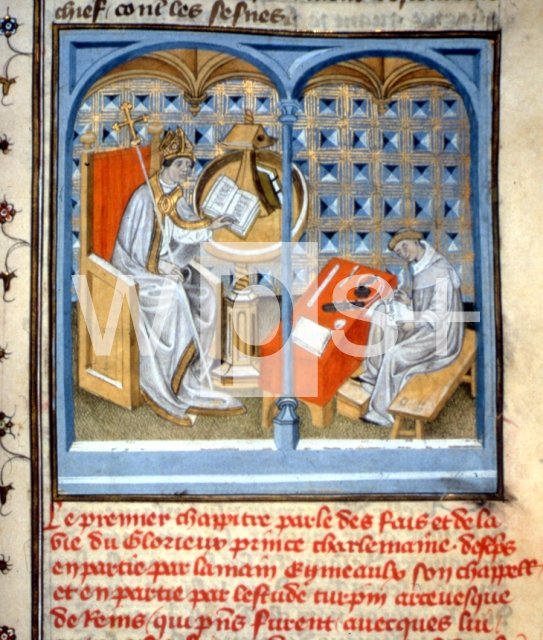 chief / con les sesnes
Le premier chappitre parle des fais et de la
vie du Glorieux prince charlemaine. descps
en partie par la main Egineaulx son chappell
et en partie par lestude turpin arcevesque
de Reins / qui pns furent / avecques lui
wps+